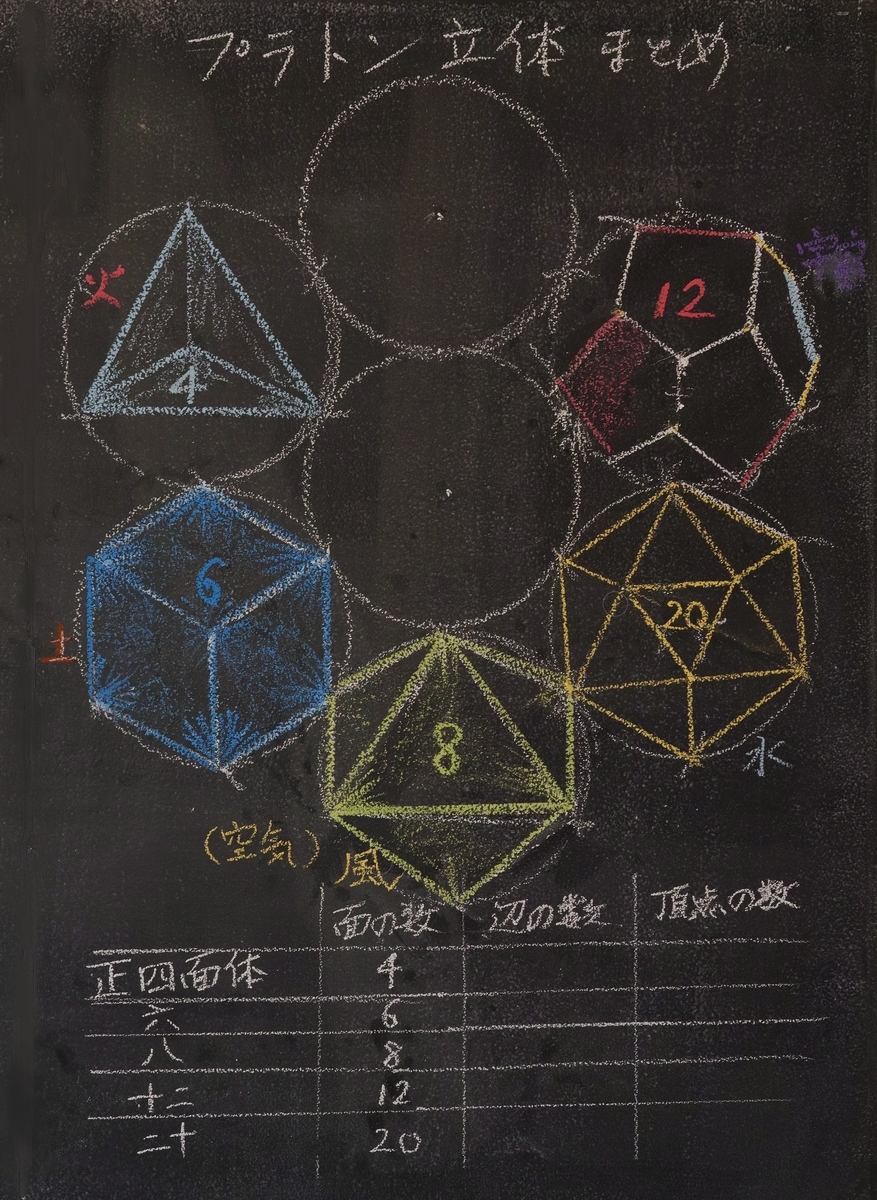 プラトン立体まとめ
火
12
宇宙
4
6
20
土
8
水
(空気) 風
面の数 辺の数 頂点の数
正四面体 4
六 6
八 8
十二 12
二十 20